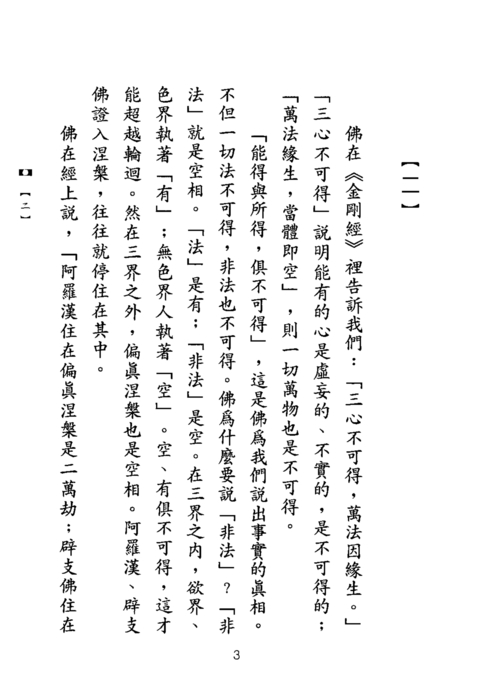 【二】
佛在《金剛經》裡告訴我們：「三心不可得，萬法因緣生。」
「三心不可得」說明能有的心是虛妄的、不實的，是不可得的；
「萬法緣生，當體即空」，則一切萬物也是不可得。
「能得與所得，俱不可得」，這是佛爲我們說出事實的眞相。
不但一切法不可得，非法也不可得。佛爲什麼要說「非法」？「非
法」就是空相。「法」是有；「非法」是空。在三界之內，欲界、
色界執著「有」；無色界人執著「空」。空、有俱不可得，這才
能超越輪迴。然在三界之外，偏眞涅槃也是空相。阿羅漢、辟支
佛證入涅槃，往往就停住在其中。
佛在經上說，「阿羅漢住在偏眞涅槃是二萬劫；辟支佛住在
【二】
3